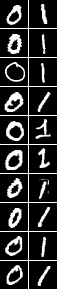 0 1
0 1
0 1
0 1
0 1
0 1
0 1
0 1
0 1
0 1